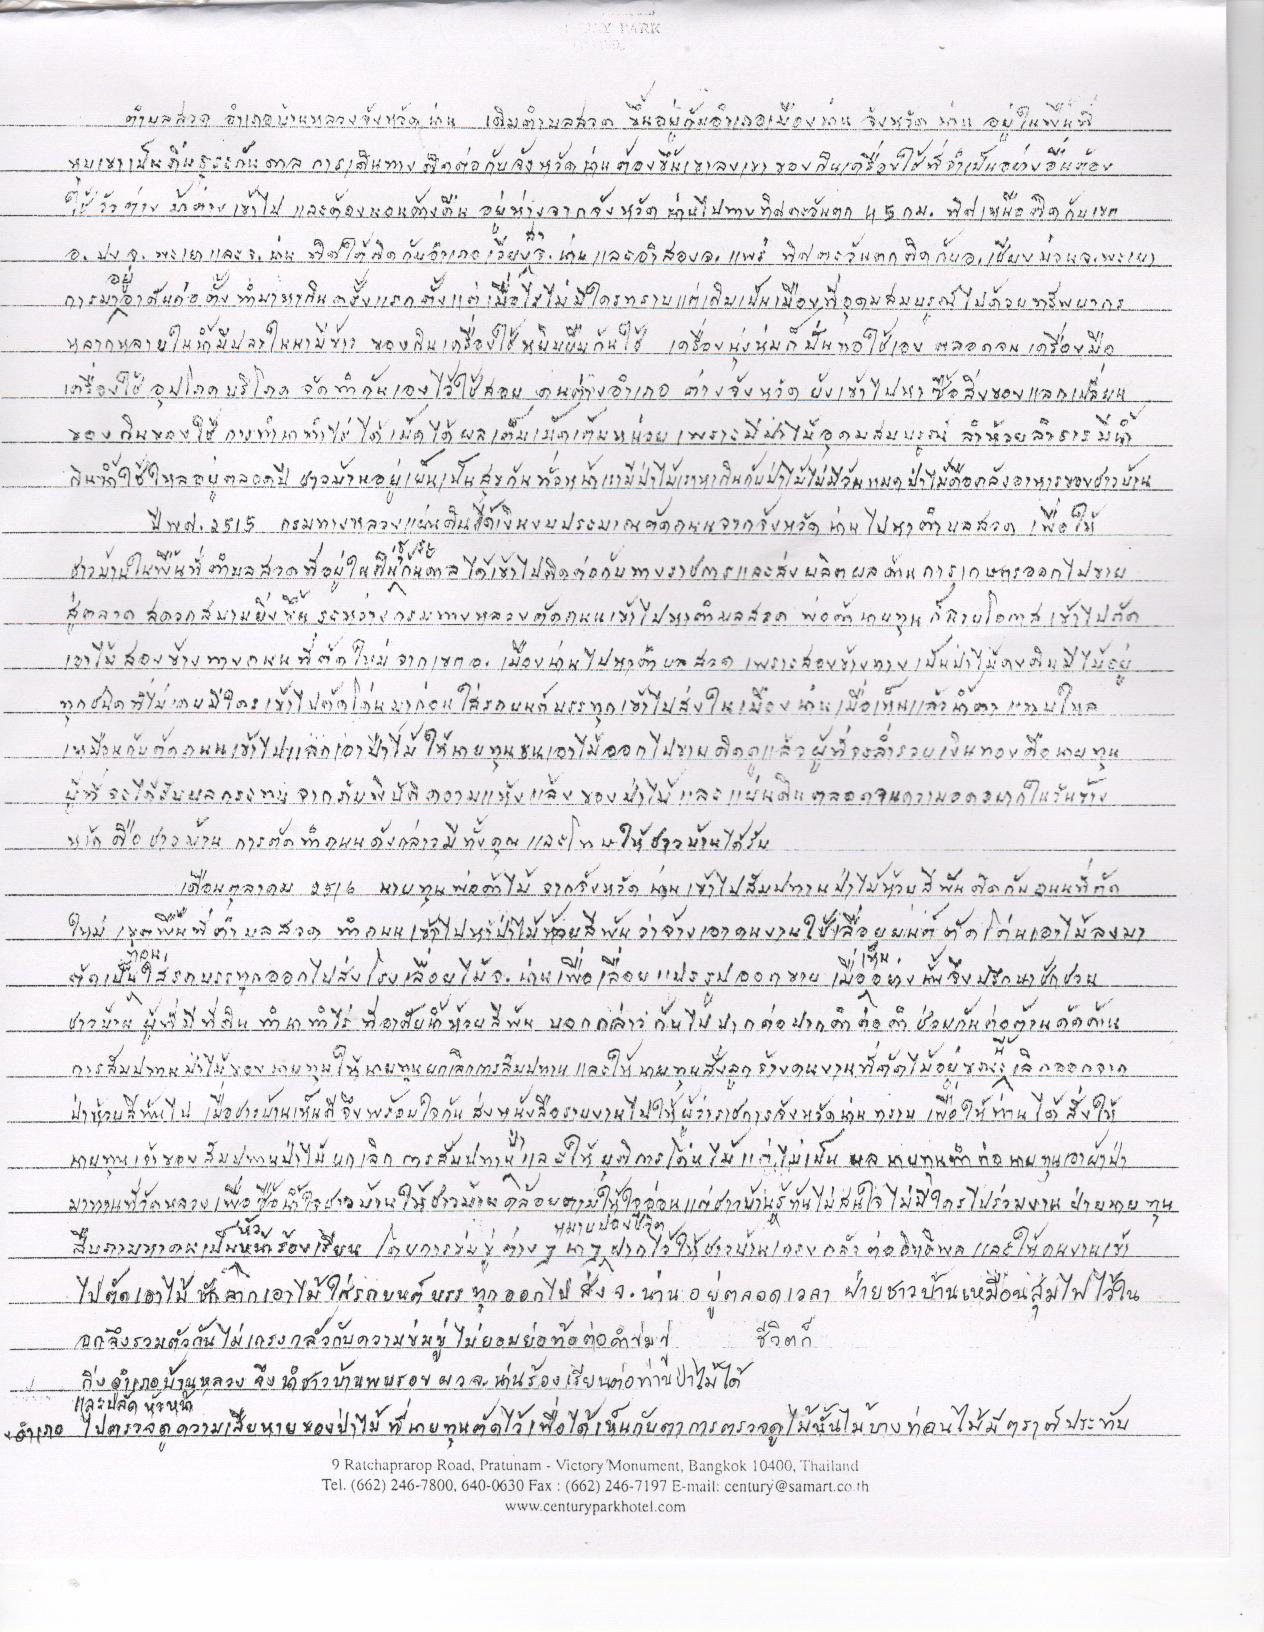 CENTURY PARK
ตำบลสวด อำเภอบ้านหลวงจังหวัดน่าน เดิมตำบลสวด ขึ้นอยู่กับอำเภอเมืองน่าน จังหวัดน่าน อยู่ในพื้นที่
หุบเขาเป็นถิ่นธุระกันดาล การเดินทางติดต่อกับจังหวัดน่านต้องขึ้นเขาลงเขา ของกินเครื่องใช้ที่จำเป็นอย่างอื่นต้อง
ใช้วัวต่าง ม้าต่างเข้าไป และต้องนอนค้างคืน อยู่ห่างจากจังหวัดน่านไปทางทิศตะวันตก 45 กม. ทิศเหนือติดกับเขต
อ. ปง จ. พะเยาและจ. น่าน ทิศใต้ติดกับอำเภอเวียงสา จ. น่านและอ.สองจ. แพร่ ทิศตะวันตกติดกับอ. เชียงม่วนจ. พะเยา
การมาอยู่อาศัยก่อตั้งทำมาหากินครั้งแรกตั้งแต่เมื่อไรไม่มีใครทราบแต่เดิมเป็นเมืองที่อุดมสมบูรณ์ไปด้วยทรัพยากร
หลากหลายในน้ำมีปลาในนามีข้าว ของกินเครื่องใช้หยิบยืมกันใช้ เครื่องนุ่งห่มก็ปั่นทอใช้เอง ตลอดจนเครื่องมือ
เครื่องใช้ อุปโภคบริโภค จัดทำกันเองไว้ใช้สอย คนต่างอำเภอ ต่างจังหวัด ยังเข้าไปหาซื้อสิ่งของแลกเปลี่ยน
ของกินของใช้ การทำนาทำไร่ได้เม็ดได้ผลเต็มเม็ดเต็มหน่วย เพราะมีป่าไม้อุดมสมบูรณ์ ลำห้วยลำธารมีน้ำ
กินน้ำใช้ไหลอยู่ตลอดปี ชาวบ้านอยู่เย็นเป็นสุขกันทั่วหน้าเรามีป่าไม้เราหากินกับป่าไม้ไม่มีวันหมดป่าไม้คือคลังอาหารของชาวบ้าน
ปีพศ. 2515 กรมทางหลวงแผ่นดินได้เงินงบประมาณตัดถนนจากจังหวัดน่านไปหาตำบลสวด เพื่อให้
ชาวบ้านในพื้นที่ตำบลสวดที่อยู่ในถิ่นธุระกันดาลได้เข้าไปติดต่อกับทางราชการและส่งผลิตผลด้านการเกษตรออกไปขาย
สู่ตลาด สดวกสบายยิ่งขึ้น ระหว่างกรมทางหลวงตัดถนนเข้าไปหาตำบลสวด พ่อค้านายทุนก็ฉวยโอกาสเข้าไปตัด
เอาไม้สองข้างทางถนนที่ตัดใหม่จากเขตอ. เมืองน่านไปหาตำบลสวด เพราะสองข้างทางเป็นป่าไม้ดงดิบมีไม้อยู่
ทุกชนิดที่ไม่เคยมีใครเข้าไปตัดโค่นมาก่อนใส่รถยนต์บรรทุกเข้าไปส่งในเมืองน่านเมื่อเห็นแล้วน้ำตาแทบไหล
เหมือนกับตัดถนนเข้าไปแลกเอาป่าไม้ ให้นายทุนขนเอาไม้ออกไปขายคิดดูแล้วผู้ที่จะร่ำรวยเงินทองคือนายทุน
ผู้ที่จะได้รับผลกระทบจากภัยพิบัติความแห้งแล้งของป่าไม้และแผ่นดินตลอดจนความอดอยากในวันข้าง
หน้าคือชาวบ้าน การตัดทำถนนดังกล่าวมีทั้งคุณและโทษให้ชาวบ้านได้รับ
เดือนตุลาคม 2516 นายทุนพ่อค้าไม้จากจังหวัดน่านเข้าไปสัมปทานป่าไม้ห้วยสีพันติดกับถนนที่ตัด
ใหม่เขตพื้นที่ตำบลสวด ทำถนนเข้าไปหาป่าไม้ห้วยสีพัน ว่าจ้างเอาคนงานใช้เลื่อยยนต์ ตัดโค่นเอาไม้ลงมา
ตัดเป็นท่อนใส่รถบรรทุกออกไปส่งโรงเลื่อยไม้จ. น่านเพื่อเลื่อยแปรรูปออกขาย เมื่อเห็นอย่างนั้นจึงปรึกษาชักชวน
ชาวบ้านผู้ที่มีที่ดิน ทำนาทำไร่ที่อาศัยน้ำห้วยสีพัน บอกกล่าวกันไปปากต่อปากคำต่อคำช่วยกันต่อต้านคัดค้าน
การสัมปทานป่าไม้ของนายทุนให้นายทุนยกเลิกการสัมปทาน และให้นายทุนสั่งลูกจ้างคนงานที่ตัดไม้อยู่ขณะนี้เลิกออกจาก
ป่าห้วยสีพันไป เมื่อชาวบ้านเห็นดีจึงพร้อมใจกันส่งหนังสือรายงานไปให้ผู้ว่าราชการจังหวัดน่านทราบ เพื่อให้ท่านได้สั่งให้
นายทุนเจ้าของสัมปทานป่าไม้ยกเลิกการสัมปทานป่าและให้ยุติการโค่นไม้แต่ไม่เป็นผล นายทุนทำต่อนายทุนเอาผ้าป่า
มาทานที่วัดหลวงเพื่อซื้อน้ำใจชาวบ้านให้ชาวบ้านคล้อยตามให้ใจอ่อนแต่ชาวบ้านรู้ทันไม่สนใจไม่มีใครไปร่วมงาน ฝ่ายนายทุน
สืบถามหาคนเป็นหัวหน้าร้องเรียน โดยการข่มขู่ต่างๆ นาๆ หมายปองชีวิตฝากไว้ให้ชาวบ้านเกรงกลัวต่ออิทธิพล และให้คนงานเข้า
ไปตัดเอาไม้ ชักลากเอาไม้ใส่รถยนต์บรรทุกออกไปส่งจ. น่านอยู่ตลอดเวลา ฝ่ายชาวบ้านเหมือนสุมไฟไว้ใน
อกจึงรวมตัวกันไม่เกรงกลัวกับความข่มขู่ไม่ยอมย่อท้อต่อคำข่มขู่ ชีวิตก็
กิ่งอำเภอบ้านหลวง จึงนำชาวบ้านพบรอง ผวจ. น่านร้องเรียนต่อท่านป่าไม้ได้
และปลัด หัวหน้า
อำเภอ ไปตรวจดูความเสียหายของป่าไม้ที่นายทุนตัดไว้เพื่อได้เห็นกับตาการตรวจดูไม้นั้นไม้บางท่อนไม่มีตราตีประทับ
9 Ratchaprarop Road, Pratunam - Victory Monument, Bangkok 10400, Thailand
Tel. (662) 246-7800, 640-0630 Fax : (662) 246-7197 E-mail: century@samart.co.th
www.centuryparkhotel.com